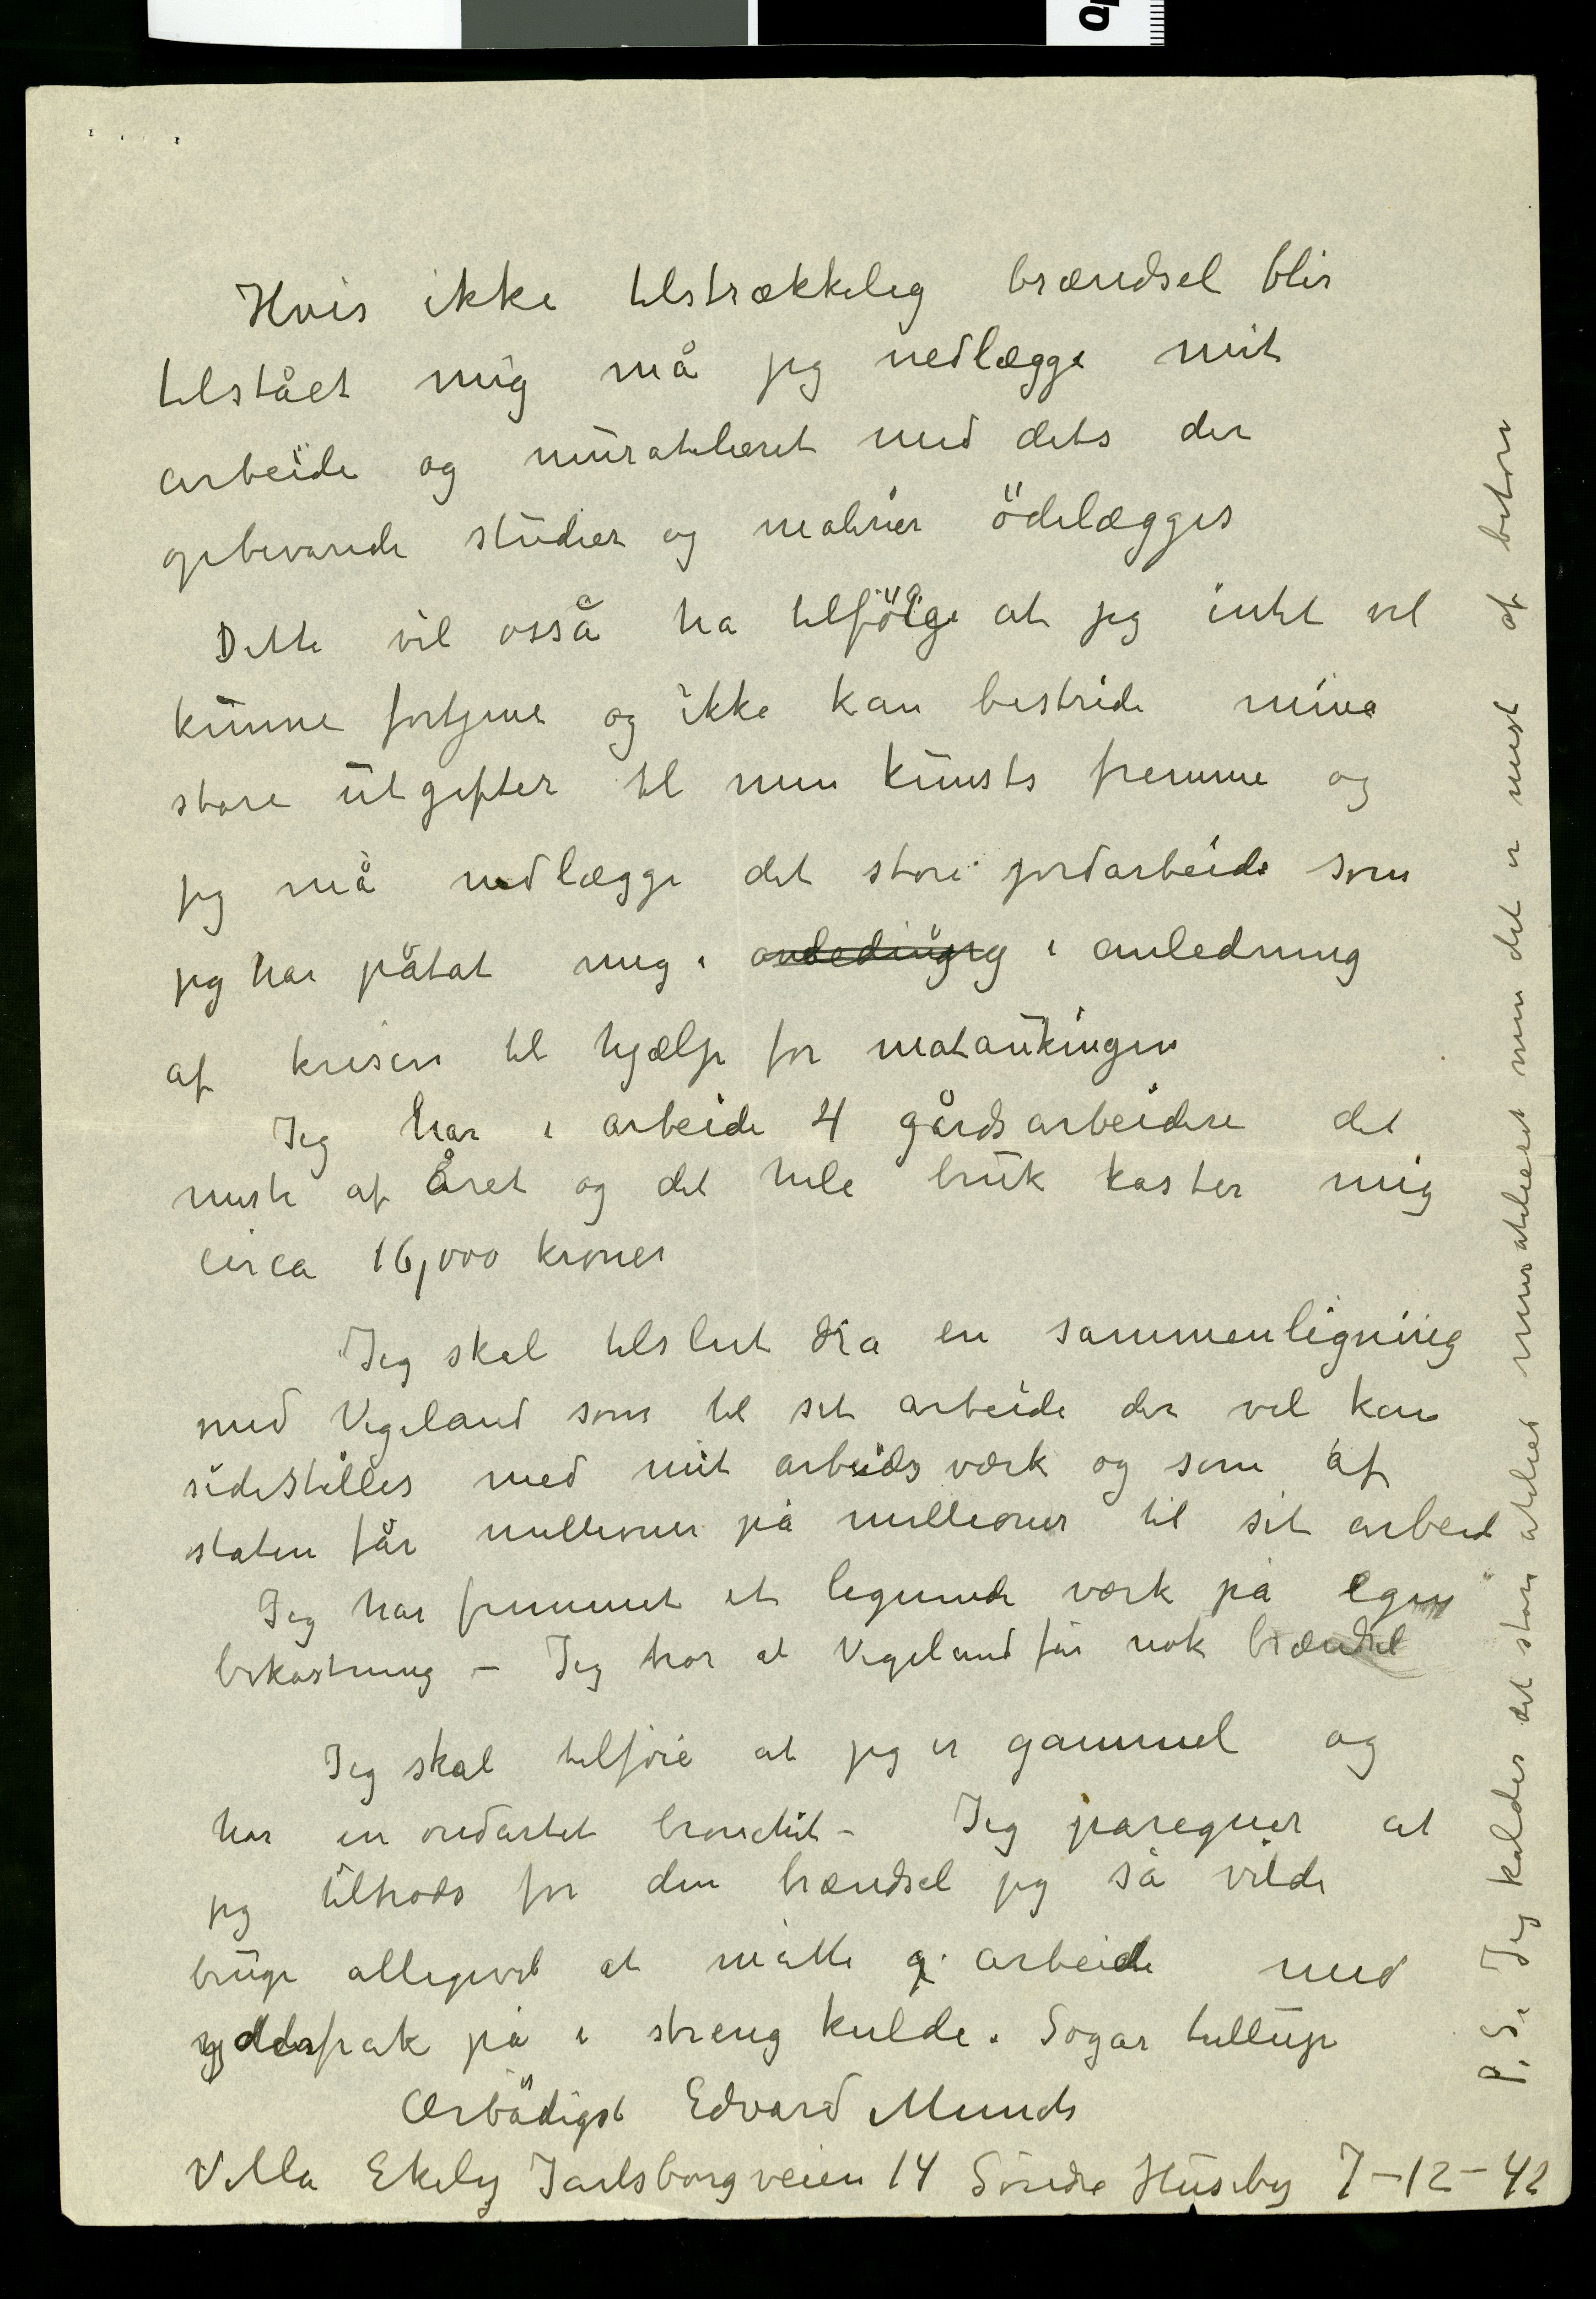 Hvis ikke tilstrækkelig brændsel blir
tilstået mig må jeg nedlægge mit
arbeide og muratelieret med dets der
opbevarede studier og malerier ödelægges
Dette vil osså ha tilfölge at jeg intet vil
kunne fortjene og ikke kan bestride mine
store utgifter til min kunsts fremme og
jeg må nedlægge det store jordarbeide som
jeg har påtat mig i anledning i anledning
af krisen til hjælp for mataukingen
Jeg har i arbeide 4 gårdsarbeidere det
meste af året og det hele bruk koster mig
circa 16,000 kroner
Jeg skal tilslut dra en sammenligning
med Vigeland som til sit arbeide der vel kan
sidestilles med mit arbeidsværk og som af
staten får millioner på millioner til sit arbeid
Jeg har fremmet et lignende værk på egen
bekostning – Jeg tror at Vigeland får nok brændsel
Jeg skal tilföie at jeg er gammel og
har en ondartet bronchit – Jeg påregner at
jeg tiltrods for den brændsel jeg så vilde
bruge alligevel at måtte arbeide med
yderfrak på i streng kulde. Sogar tullup
Ærbödigst Edvard Munch
Villa Ekely Jarlsborgveien 14 Söndre Huseby 7–12–42
P.S. Jeg kalder det store atelier muratelieret men det er mest af beton